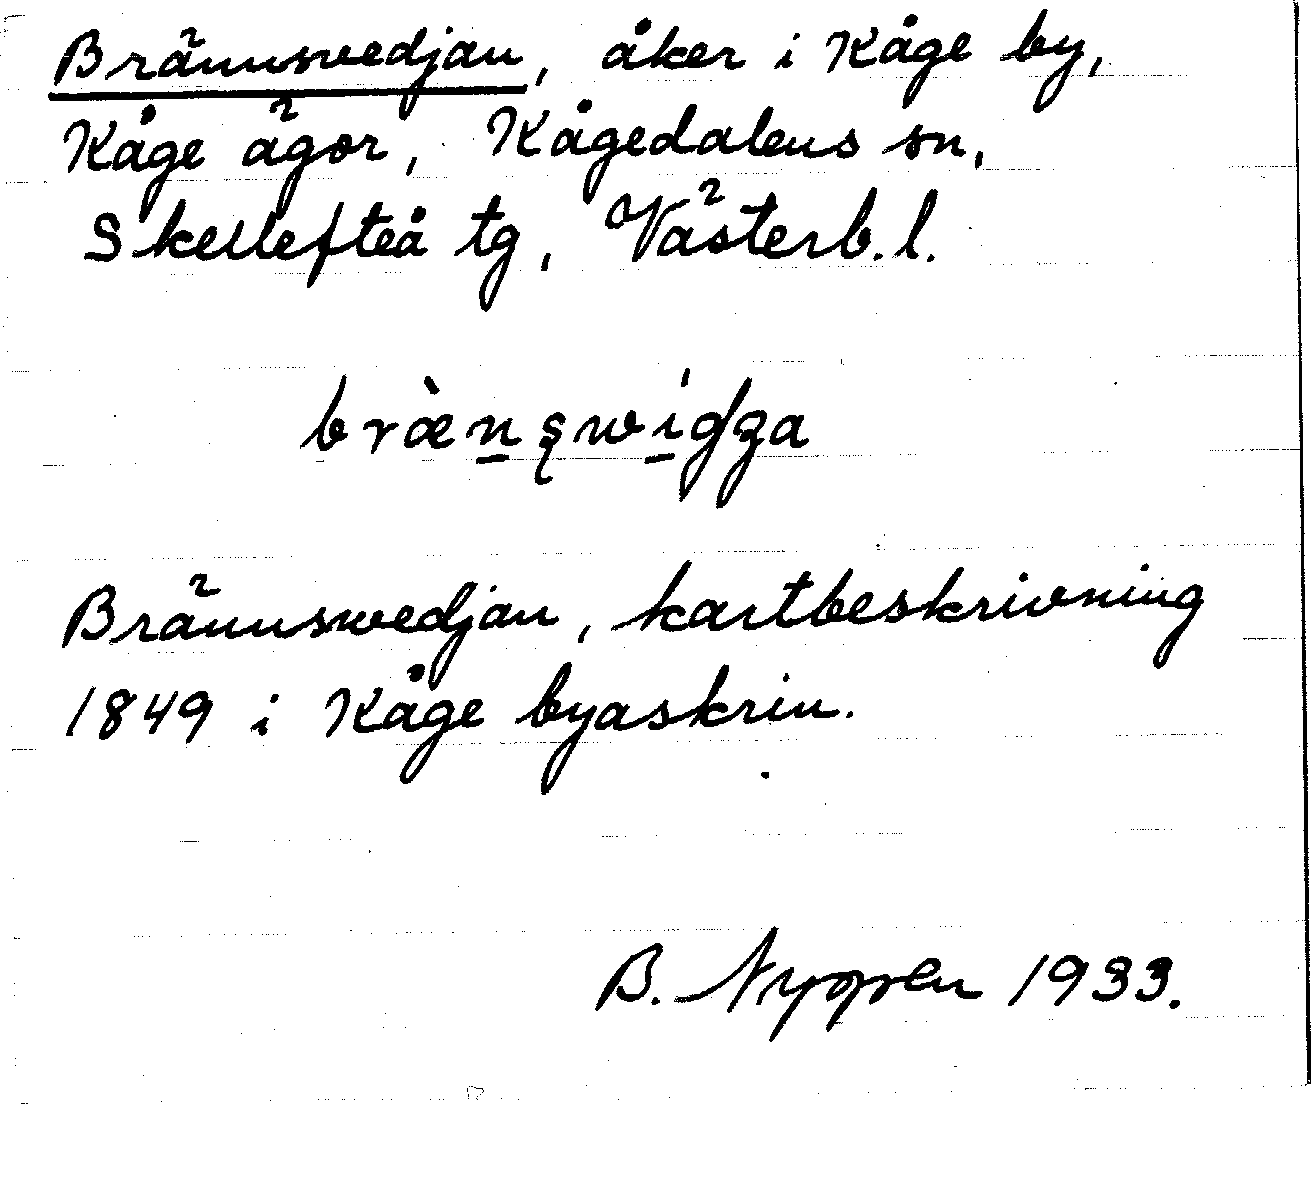 Brännsvedjan, åker i Kåge by,
Kåge ägor, Kågedalens sn,
Skellefteå tg, Västerb. l.
bræ̀n̠ʂwi̠gʒa
Brännsvedjan, kartbeskrivning
1849 i Kåge byaskrin.
B. Nygren 1933.